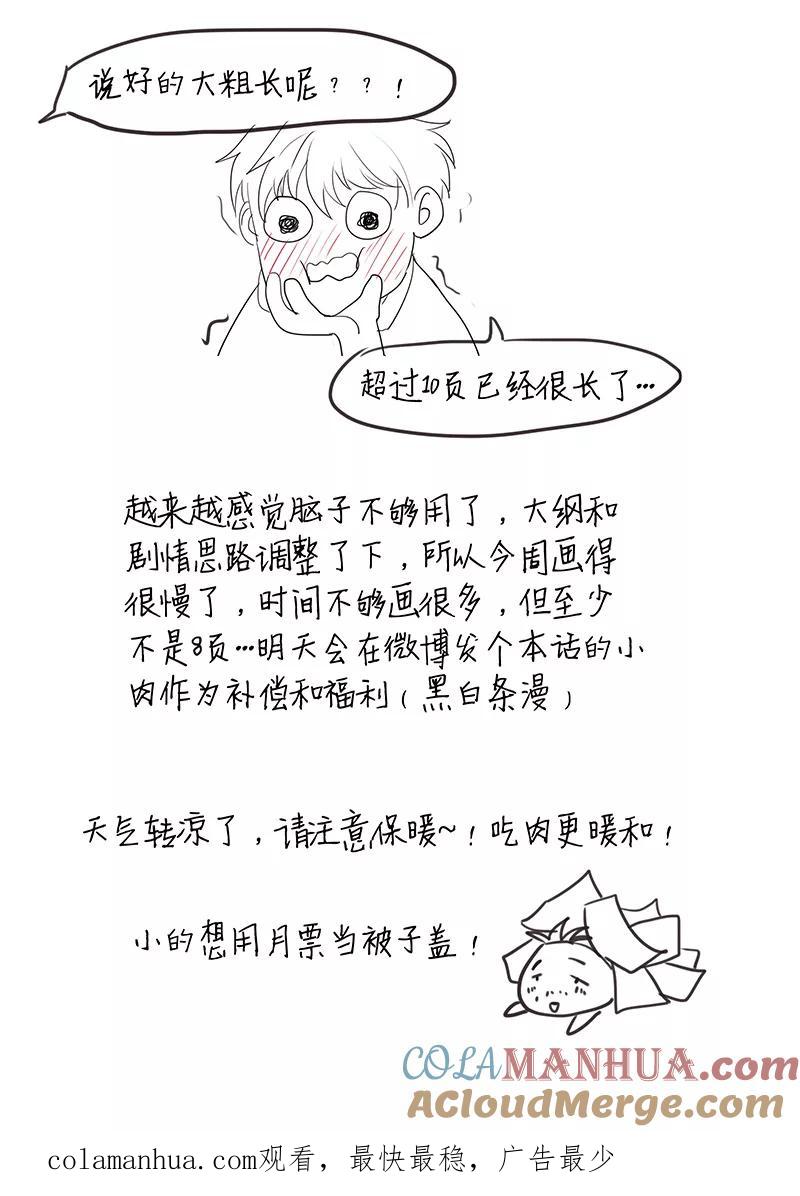 说好的大粗长呢？？！
超过10页已经很长了…
越来越感觉脑子不够用了，大纲和
剧情思路调整了下，所以今周画得
很慢了，时间不够画很多，但至少
不是8页…明天会在微博发个本话的小
肉作为补偿和福利（黑白条漫）
天气转凉了，请注意保暖~！吃肉更暖和！
小的想用月票当被子盖！
COLAMANHUA.com
ACloudMerge.com
colamanhua.com观看，最快最稳，广告最少